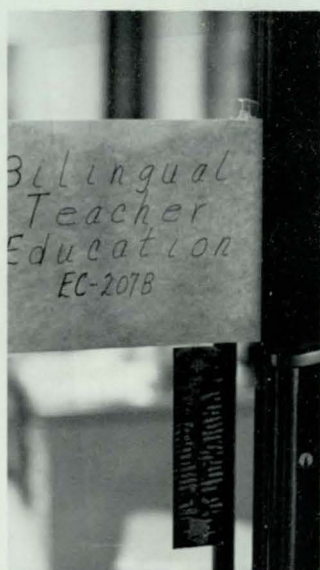 Bilingual
Teacher
Education
EC-207B